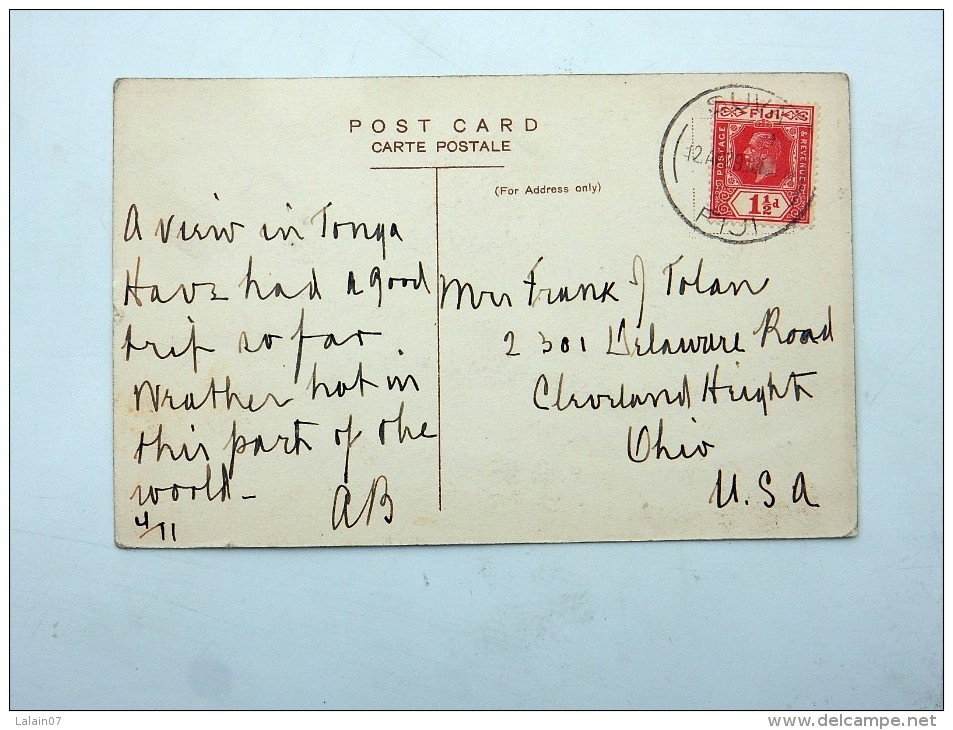 POST CARD
CARTE POSTALE
(For Address only)
A view in Tonga
Have had a good
trip so far
Weather hot in
this part of the
world -
AB
4/11
Mrs Frank J Tolan
2301 Delaware Road
Cleveland Heights
Ohio
U.S A
FIJI
POSTAGE
& REVENUE
1½d
FIJI
Lalain07
www.delcampe.net